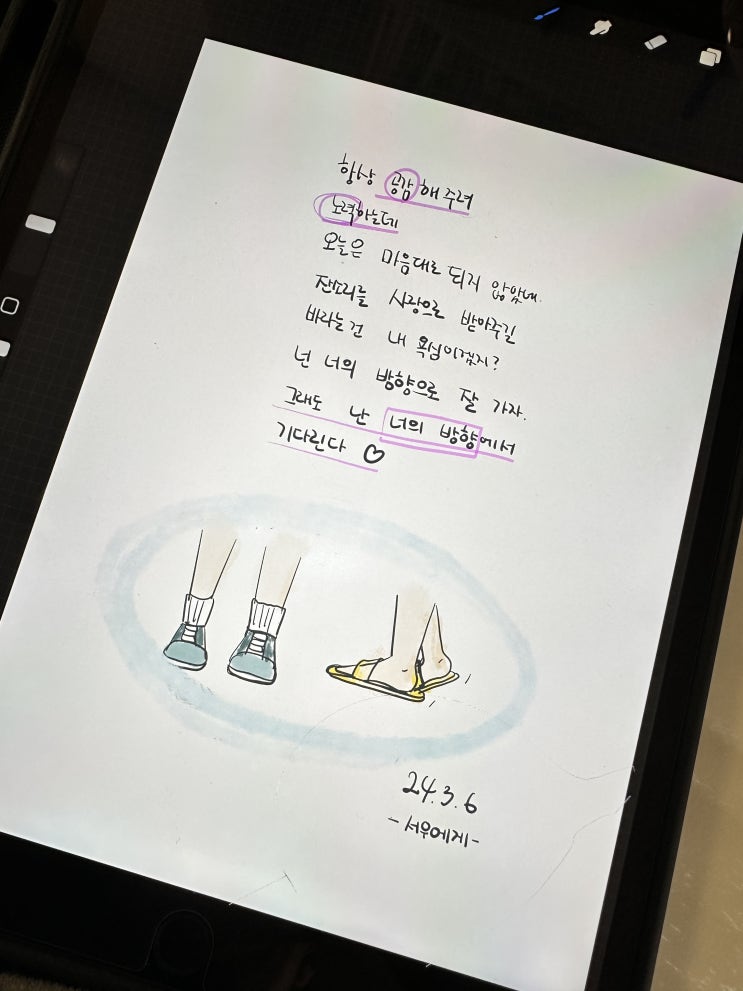 항상 공감해 주려
노력하는데
오늘은 마음대로 되지 않았네.
잔소리를 사랑으로 받아주길
바라는 건 내 욕심이겠지?
넌 너의 방향으로 잘 가자.
그래도 난 너의 방향에서
기다린다 ♡
24.3.6
-서우에게-